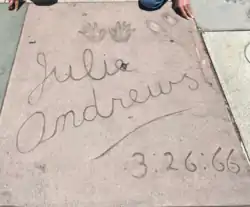 Julie
Andrews
3:26:66